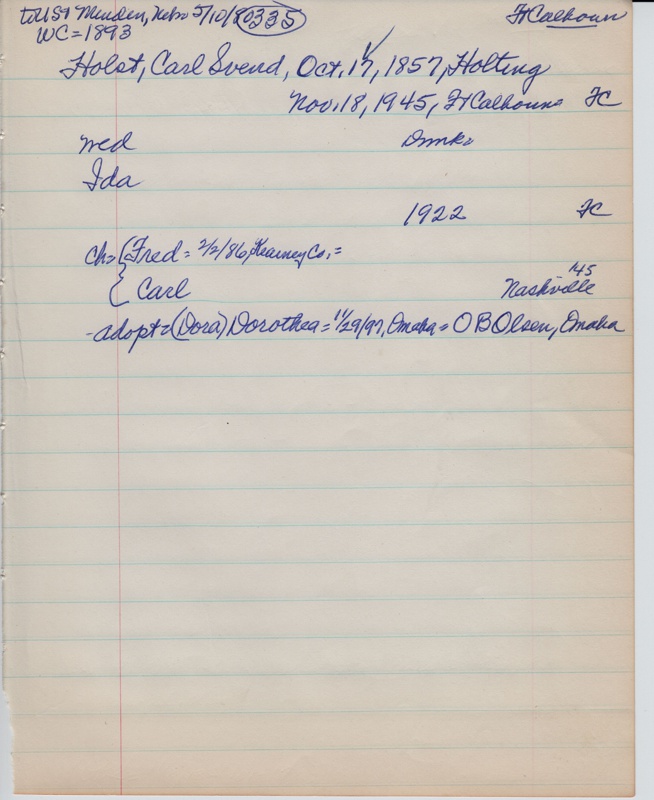 to US & Menden, Nebr 5/10/8 0335 Ft Calhoun
WC = 1893
Holst, Carl Svend, Oct. 17, 1857, Holting
Nov. 18, 1945, Ft Calhoun FC
wed Dnmk
Ida
1922 FC
ch = Fred = 2/2/86, Kearney Co. =
'45
Carl Nashville
- adopt = (Dora) Dorothea = 11/29/97, Omaha = O B Olsen, Omaha